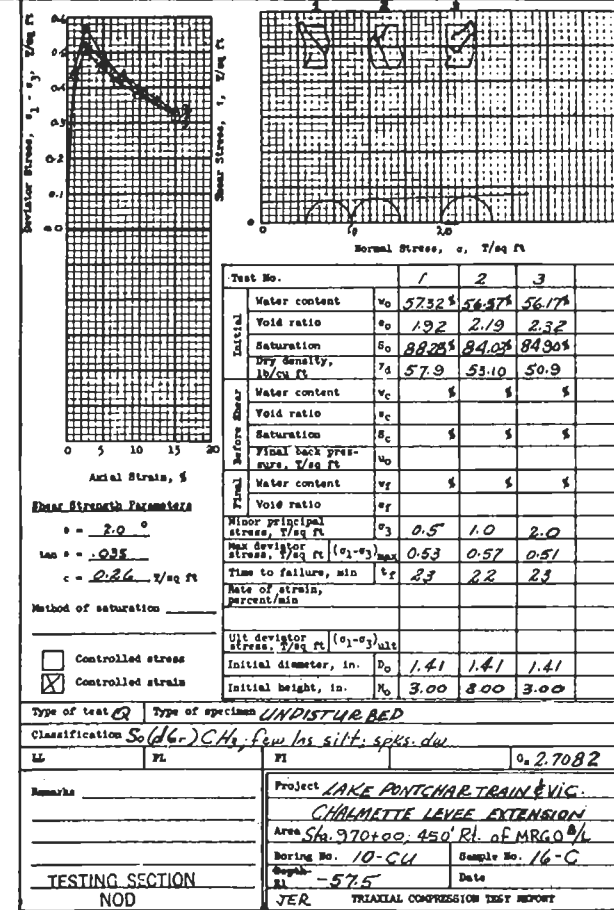 1 2 3
0.6
0.5
0.4
0.3
0.2
0.1
0
Deviator Stress, σ1 - σ3, T/sq ft
Shear Stress, τ, T/sq ft
0 5 10 15 20
Axial Strain, %
0
0 1.0 2.0
Normal Stress, σ, T/sq ft
Shear Strength Parameters
= 2.0 °
tan = .035
c = 0.26 T/sq ft
Method of saturation
Controlled stress
Controlled strain
Test No. 1 2 3
Initial
Water content wo 57.32 % 56.57% 56.17%
Void ratio eo 1.92 2.19 2.32
Saturation So 88.28% 84.03% 84.90%
Dry density, lb/cu ft γd 57.9 53.10 50.9
Before Shear
Water content wc % % %
Void ratio ec
Saturation Sc % % %
Final back pressure, T/sq ft uo
Final
Water content wf % % %
Void ratio ef
Minor principal stress, T/sq ft σ3 0.5 1.0 2.0
Max deviator stress, T/sq ft (σ1-σ3)max 0.53 0.57 0.51
Time to failure, min tf 23 22 23
Rate of strain, percent/min
Ult deviator stress, T/sq ft (σ1-σ3)ult
Initial diameter, in. Do 1.41 1.41 1.41
Initial height, in. Ho 3.00 3.00 3.00
Type of test Q Type of specimen UNDISTURBED
Classification So(dGr) CH3; few lns silt; spks. dw
LL PL PI Gs 2.7082
Remarks
Project LAKE PONTCHARTRAIN & VIC.
CHALMETTE LEVEE EXTENSION
Area Sta. 970+00; 450' Rt. of MRGO B/L
Boring No. 10-CU Sample No. 16-C
Depth El -57.5 Date
TESTING SECTION
NOD
JER TRIAXIAL COMPRESSION TEST REPORT